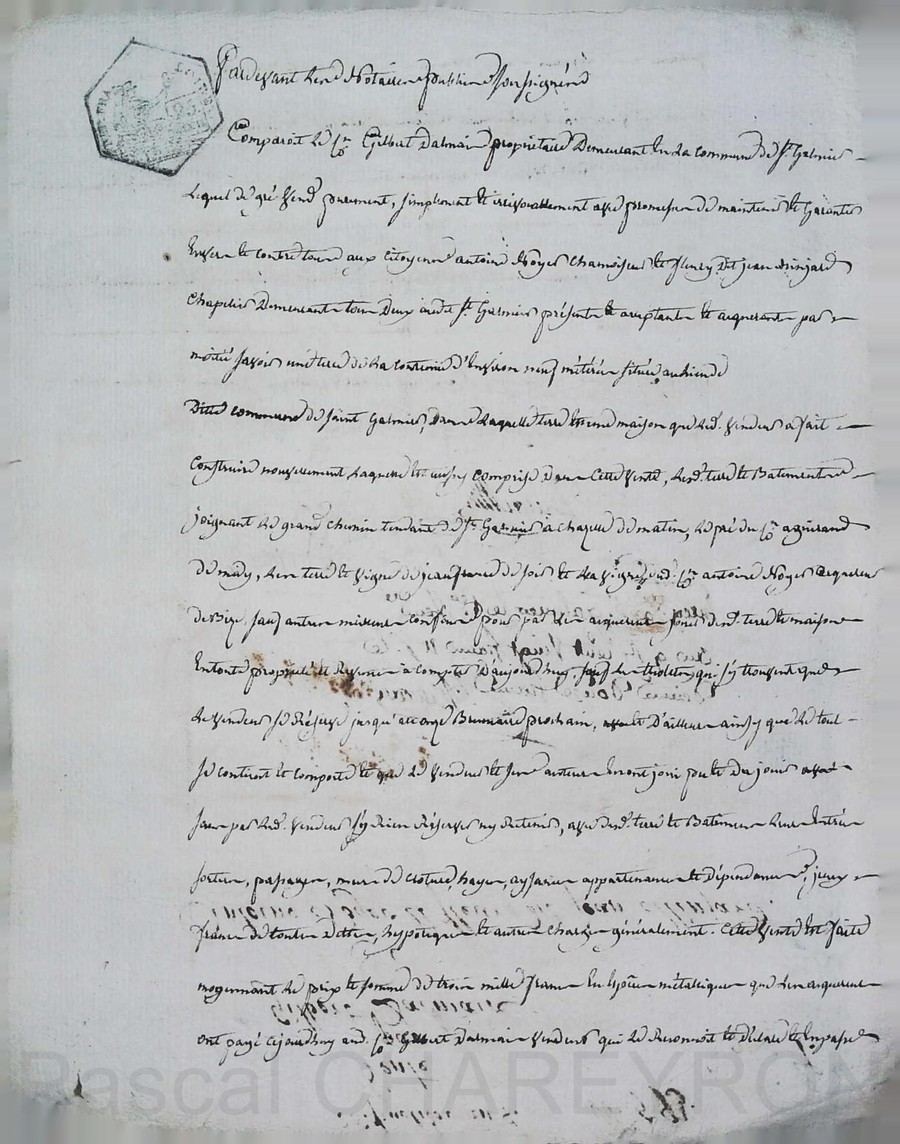 Pardevant les Notaires publics soussignés
Comparoit le Cn Gilbert Dalmais propriétaire Demeurant en la commune de St Galmier
Lequel de gré vend purement, simplement et irrévocablement avec promesse de maintenir et Garantir
Envers et contre tous aux citoyens antoine Noyer chamoiseur et fleury dit jean
chapelier Demeurants tous Deux audit St Galmier présents et acceptants et acquerants par
moitié savoir une terre de la contenue d'Environ neuf métérées située au
Ditte commune de Saint Galmier, Dans Laquelle terre est une maison que led. vendeur a fait
Construire nouvellement Laquelle est aussy Comprise dans cette vente, lesd. terre et Batiment
joignant le grand chemin tendant de St Galmier à chazelle de matin, le pré du Cn
de midy, les terre et vigne de jean de soir et la vigne dud. Cn antoine Noyer acquereur
de Bize, sauf autres meilleurs confins, pour par les acquereurs jouir desd. terre et maison
En toute propriété et à compter D'aujourd'huy, sauf les qui s'y trouvent que
Le vendeur se Réserve jusqu'au onze Brumaire prochain, D'ailleurs ainsy que le tout
se contient et comporte et que le vendeur et ses auteurs En ont joui pu et du jouir
sans par led. vendeur s'y Rien Réserver ny Retenir, avec desd. terre et Batiment leurs Entrées
sorties, passages, murs de cloture, hayes, aysances appartenances et dépendances,
francs de toutes dettes, hypotèques et autres charges généralement. Cette vente est faite
moyennant le prix et somme de trois mille francs En Espèces métalliques que les acquereurs
ont payé cejourd'huy aud. Cn Gilbert Dalmais vendeur qui le Reconnoit et déclare et En passe
Pascal CHAREYRON